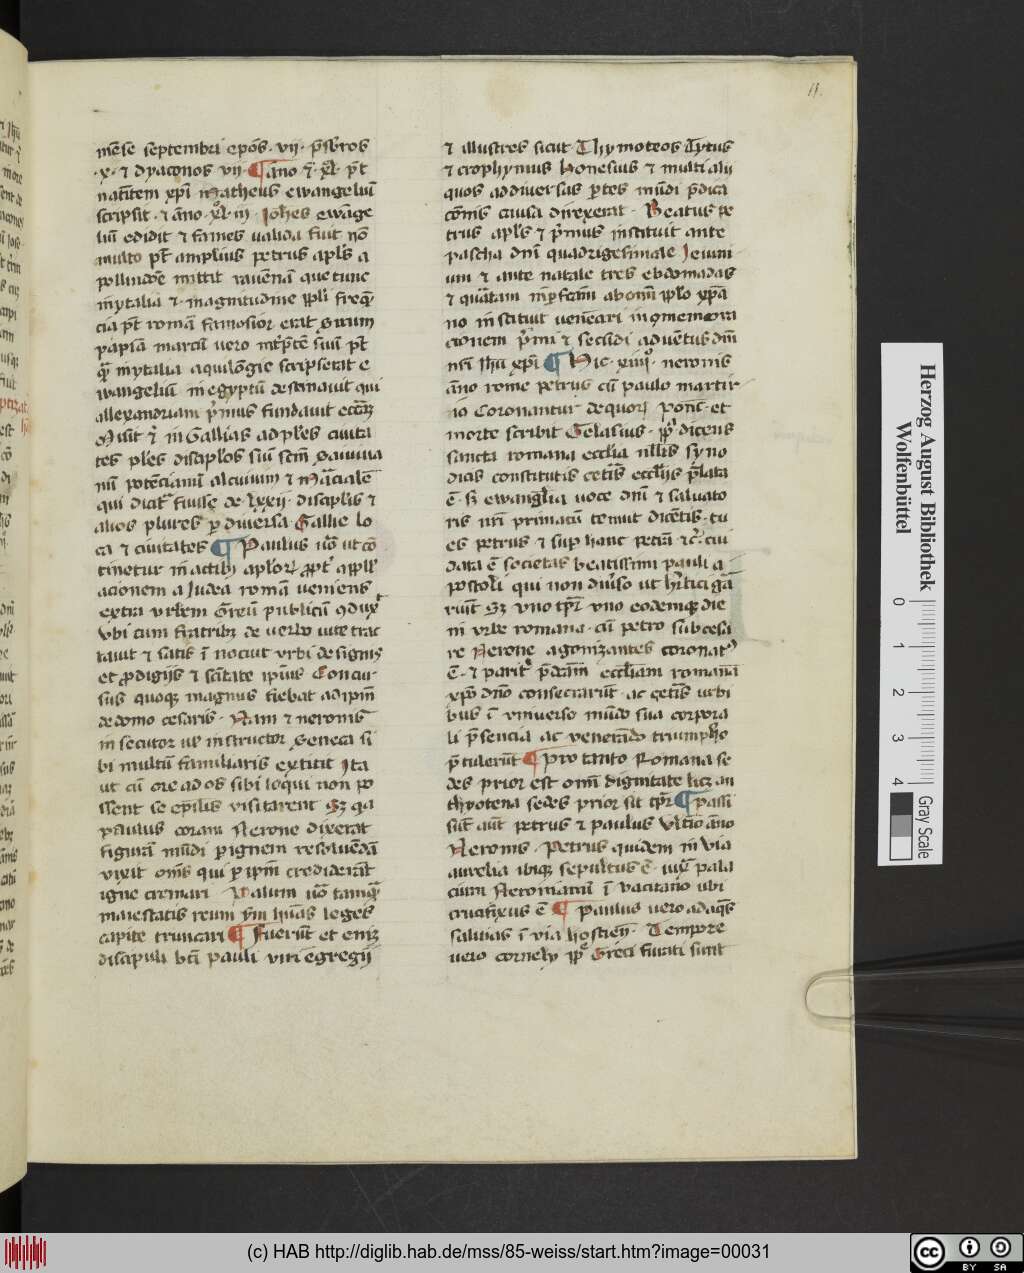 11.
mēse septembri epōs · vij · p̄sb̄ros
· x · ⁊ dyaconos vij ¶ āno
natītem xp̄i Matheus ewangeliū
scripsit · ⁊ āno · xliij · Joh̄es ewāge
liū edidit ⁊ fames valida fuit nō
multo pt̄ amplius petrus apl̄s a
pollinarē mittit ravēnā que tunc
in ytalia ⁊ magnitudine ppl̄i freq̄
cia pt̄ romā famosior erat Syrum
papiam marcū vero
q̄ in ytalia aquilegie scripserat e
wangeliū in egyptū destinavit qui
allexandriam p̄mus fundavit
Misit in Gallias ad pl̄es civita
tes pl̄es discipl̄os
nū potēcianū alcivum ⁊ Marcialē
qui dicūt̄ fuisse de lxxij discipl̄is ⁊
alios plures p diversa Gallie lo
ca ⁊ civitates ¶ Paulus v̄o ut cō
tinetur in actibꝫ apl̄oꝝ
acionem a Judea romā veniens
extra urbem publicū
Vbi cum fratribꝫ de verbo vite trac
tavit ⁊ satis ī nocuit urbi de signis
et prodigijs ⁊ sc̄itate ipius Concur
sus quoqꝫ magnus fiebat ad ip̄m
de domo cesaris · Nam ⁊ neronis
in secutor institutor Seneca si
bi multū familiaris extitit Ita
ut cū ore ad os sibi loqui non po
ssent se epilis visitarent Sꝫ qa
paulus coram Nerone dixerat
figurā mūdi p ignem resolvēdā
vixit om̄s qui p ip̄m crediderūt
igne cremari · Paulum v̄o tamqꝫ
maiestatis reum leges
capite truncari ¶ Fuerūt et eniꝫ
discipuli bt̄i pauli viri egregij
⁊ illustres sicut Thymoteos Tytus
⁊ crophymus Honesius ⁊ multi alij
quos ad diversas p̄tes mūdi p̄dica
cōnis causa direxerat · Beatus pe
trus apl̄s ⁊ p̄mus instituit ante
pascha dn̄i quadrigesimale Jeiuni
um ⁊ ante natale tres ebdomadas
⁊ quātam ab om̄i pplo xp̄ia
no instituit venerari
cionem p̄mi ⁊ secūdi adventus dn̄i
nr̄i Ih̄u xp̄i ¶ Hic · xiiij° · neronis
āno rome petrus cū paulo martir
io Coronantur de quoꝝ · et
morte scribit Gelasius · pp̄ dicens
sancta romana eccl̄ia nullis syno
dicis constitutis cet̄is eccl̄ijs p̄lata
ē · sꝫ ewangl̄ia voce dn̄i ⁊ salvato
ris nr̄i primatū tenuit dicētis · tu
es petrus ⁊ sup hanc petrā ⁊c̄ · cui
data ē societas beatissimi pauli a
postoli qui non diuīso ut h̄etici gā
riūt Sꝫ vno tp̄r vno eodemqꝫ die
in vrbe romana · cū petro sub cesa
re Nerone agonizantes coronati
ē · ⁊ parit̄ p̄dc̄am eccl̄iam romanā
xp̄o dn̄o consecrarūt · ac cet̄is urbi
bus ī vniverso mūdo sua corpora
li p̄sencia ac venerādo triumpho
p̄tulerūt ¶ pro tanto Romana se
des prior est om̄i dignitate licꝫ an
thyotena sedes prior sit tp̄r ¶ passi
sūt aūt petrus ⁊ paulus Vltīo āno
Neronis · Petrus quidem in via
aurelia ibiqꝫ sepultus ē · iuxᵃ pala
cium Neronianū ī vaticano ubi
crucifixus ē ¶ Paulus vero ad aq̄s
salvias ī via hostien̄ · Tempore
vero cornely pp̄ Greci furati sunt
Herzog August Bibliothek
Wolfenbüttel
0 1 2 3 4
Gray Scale
(c) HAB http://diglib.hab.de/mss/85-weiss/start.htm?image=00031
cc BY SA